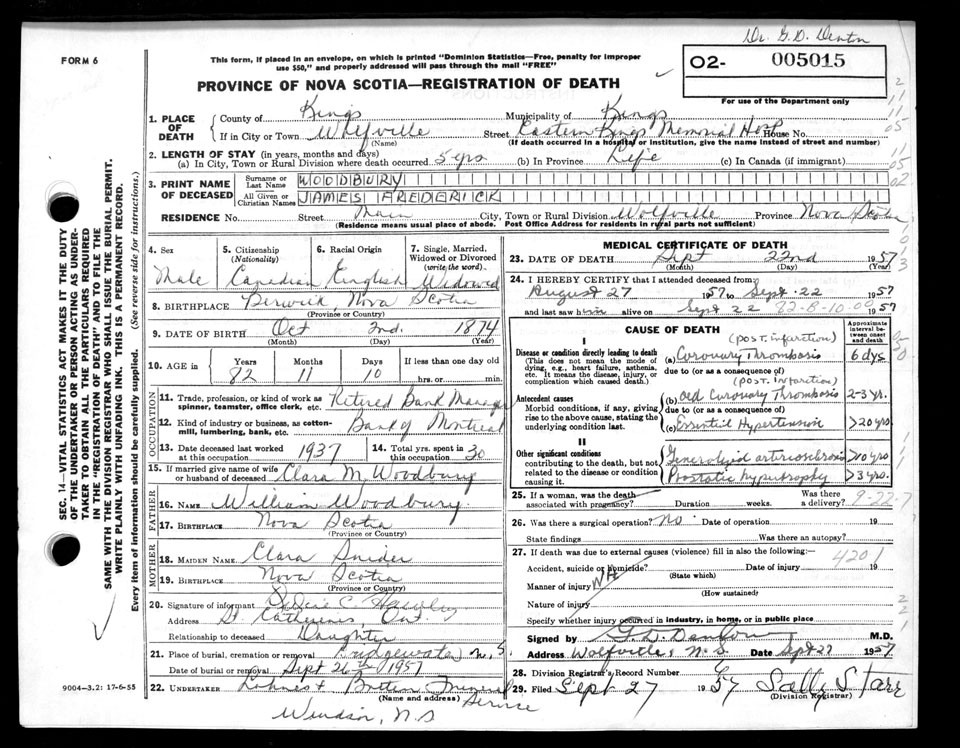 Dr. G. D. Denton
FORM 6
This form, if placed in an envelope, on which is printed "Dominion Statistics—Free, penalty for improper
use $50," and properly addressed will pass through the mail "FREE"
PROVINCE OF NOVA SCOTIA—REGISTRATION OF DEATH
O2- 005015
For use of the Department only
SEC. 14—VITAL STATISTICS ACT MAKES IT THE DUTY
OF THE UNDERTAKER OR PERSON ACTING AS UNDER-
TAKER TO OBTAIN ALL THE PARTICULARS REQUIRED
IN THE "REGISTRATION OF DEATH" AND TO FILE THE
SAME WITH THE DIVISION REGISTRAR WHO SHALL ISSUE THE BURIAL PERMIT.
WRITE PLAINLY WITH UNFADING INK. THIS IS A PERMANENT RECORD.
Every item of information should be carefully supplied. (See reverse side for instructions.)
1. PLACE OF DEATH
County of Kings Municipality of Kings
If in City or Town Wolfville Street Eastern Kings Memorial Hosp House No.
(Name) (If death occurred in a hospital or institution, give the name instead of street and number)
2. LENGTH OF STAY (in years, months and days)
(a) In City, Town or Rural Division where death occurred 5 yrs (b) In Province Life (c) In Canada (if immigrant)
3. PRINT NAME OF DECEASED
Surname or Last Name WOODBURY
All Given or Christian Names JAMES FREDERICK
RESIDENCE No. Street Main City, Town or Rural Division Wolfville Province Nova Scotia
(Residence means usual place of abode. Post Office Address for residents in rural parts not sufficient)
4. Sex Male
5. Citizenship (Nationality) Canadian
6. Racial Origin English
7. Single, Married, Widowed or Divorced (write the word) Widowed
8. BIRTHPLACE Berwick, Nova Scotia
(Province or Country)
9. DATE OF BIRTH Oct 2nd. 1874
(Month) (Day) (Year)
10. AGE in Years 82 Months 11 Days 10 If less than one day old hrs. or min.
OCCUPATION
11. Trade, profession, or kind of work as spinner, teamster, office clerk, etc. Retired Bank Manager
12. Kind of industry or business, as cotton-mill, lumbering, bank, etc. Bank of Montreal
13. Date deceased last worked at this occupation 1937
14. Total yrs. spent in this occupation 30
15. If married give name of wife or husband of deceased Clara M. Woodbury
FATHER
16. Name William Woodbury
17. BIRTHPLACE Nova Scotia
(Province or Country)
MOTHER
18. MAIDEN NAME Clara Snider
19. BIRTHPLACE Nova Scotia
(Province or Country)
20. Signature of informant C. Hawley
Address St. Catherines, Ont.
Relationship to deceased Daughter
21. Place of burial, cremation or removal Bridgewater N.S.
Date of burial or removal Sept 26th 1957
22. UNDERTAKER Funeral Service
(Name and address)
Windsor, N.S
9004-3.2: 17-6-55
MEDICAL CERTIFICATE OF DEATH
23. DATE OF DEATH Sept 22nd 1957
(Month) (Day) (Year)
24. I HEREBY CERTIFY that I attended deceased from
August 27 1957 to Sept. 22 1957
and last saw him alive on Sept 22 1957
82-8-10-00
CAUSE OF DEATH
Approximate interval between onset and death
I
Disease or condition directly leading to death
(This does not mean the mode of dying, e.g., heart failure, asthenia, etc. It means the disease, injury, or complication which caused death.)
(post. infarction)
(a) Coronary Thrombosis 6 dys
due to (or as a consequence of)
(post. Infarction)
Antecedent causes
Morbid conditions, if any, giving rise to the above cause, stating the underlying condition last.
(b) Old Coronary Thrombosis 2-3 yr.
due to (or as a consequence of)
(c) Essential Hypertension >20 yrs
II
Other significant conditions
contributing to the death, but not related to the disease or condition causing it.
Generalized arteriosclerosis >10 yrs
Prostatic hypertrophy >3 yrs.
25. If a woman, was the death associated with pregnancy? Duration weeks. Was there delivery?
9-22-7
26. Was there a surgical operation? no Date of operation 19
State findings Was there an autopsy?
27. If death was due to external causes (violence) fill in also the following:—
4201
Accident, suicide or homicide? Date of injury 19
(State which)
Manner of injury
(How sustained)
Nature of injury
Specify whether injury occurred in industry, in home, or in public place
Signed by G. D. Denton M.D.
Address Wolfville, N.S. Date Sept 27 1957
28. Division Registrar's Record Number
29. Filed Sept 27 1957 Sally Starr
(Division Registrar)